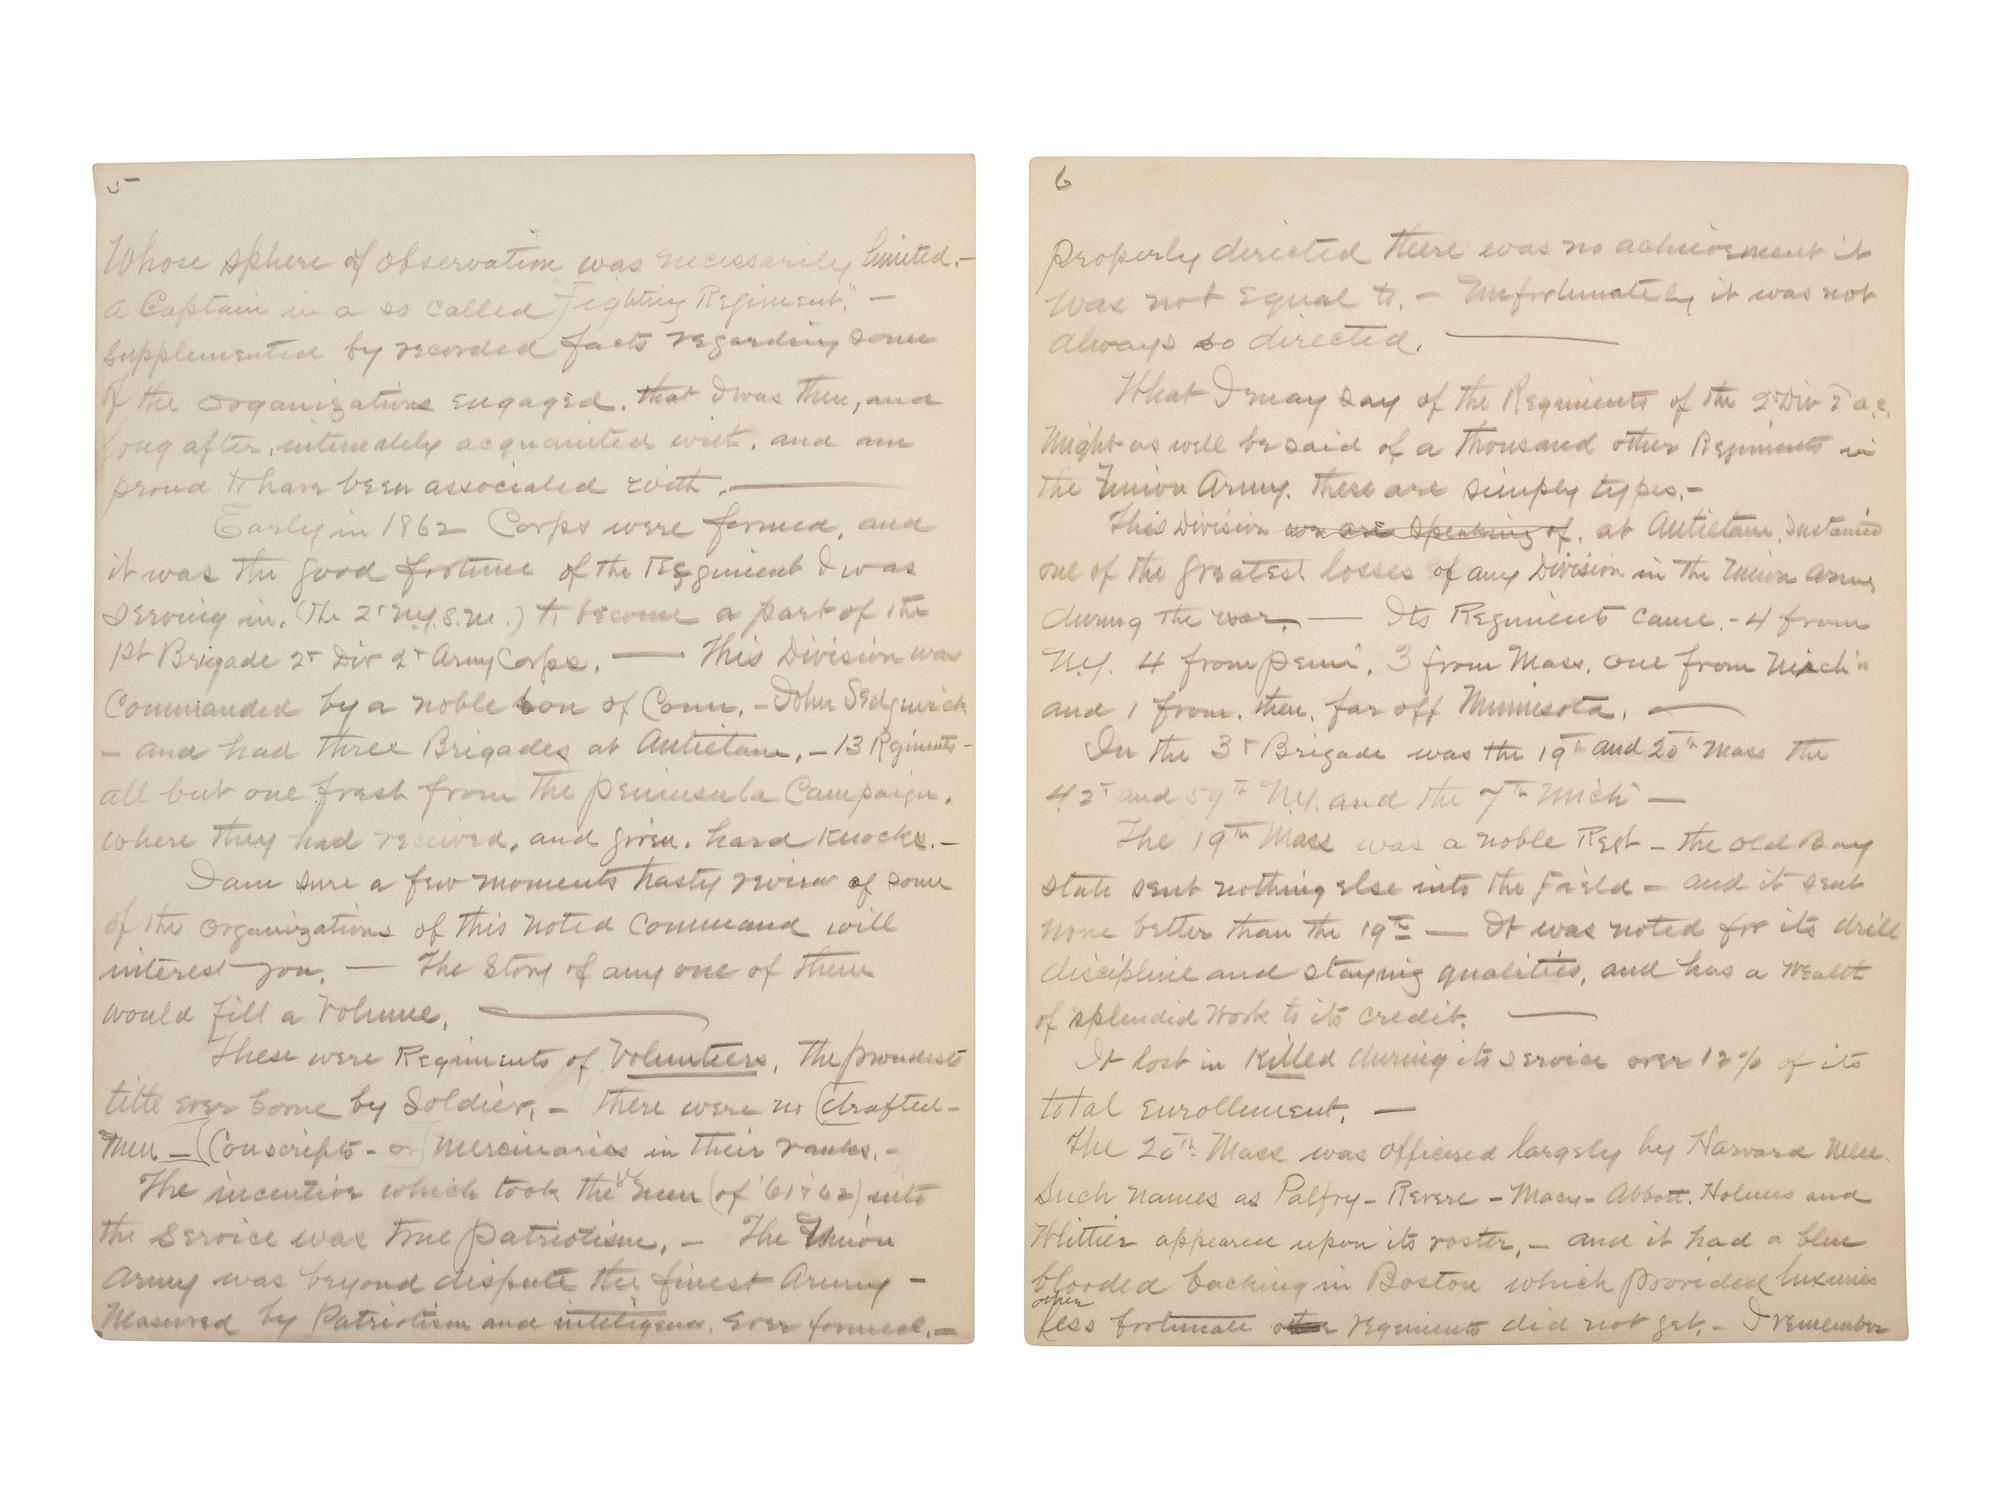 5
Whose sphere of observation was necessarily limited.-
a Captain in a so called "Fighting Regiment," -
supplemented by recorded facts regarding some
of the organizations engaged. that I was then, and
long after, intimately acquainted with, and am
proud to have been associated with. ———
Early in 1862 Corps were formed, and
it was the good fortune of the Regiment I was
serving in. (The 2d N.Y.S.M.) to become a part of the
1st Brigade 2d Div 2d Army Corps. — This Division was
Commanded by a noble son of Conn. - John Sedgwick
- and had three Brigades at Antietam. - 13 Regiments -
all but one fresh from the Peninsula Campaign.
where they had received, and given, hard knocks. -
I am sure a few moments hasty review of some
of the organizations of this noted Command will
interest you. — The Story of any one of them
would fill a Volume. ———
These were Regiments of Volunteers, The proudest
title ever borne by Soldier. - There were no (drafted-
men - (Conscripts - or) Mercinaries in their ranks. -
The incentive which took the men (of '61 & 62) into
the Service was true Patriotism. - The Union
Army was beyond dispute the finest Army -
Measured by Patriotism and inteligence. Ever formed. -
6
Properly directed there was no achievement it
was not Equal to. - Unfortunately it was not
always so directed. ———
What I may say of the Regiments of the 2d Div 2 a.c.
Might as well be said of a thousand other Regiments in
the Union Army. These are simply types. -
This Division we are speaking of. at Antietam, Sustained
one of the greatest losses of any Division in the Union Army
during the war. — Its Regiments came. - 4 from
N.Y. 4 from Penn'. 3 from Mass. one from Mich'n
and 1 from, then, far off Minnisota. —
In the 3d Brigade was the 19th and 20th Mass the
42d and 59th N.Y. and the 7th Mich' —
The 19th Mass was a noble Regt - the old Bay
state sent nothing else into the Field - and it sent
none better than the 19th — It was noted for its drill
discipline and staying qualities, and has a Wealth
of splendid Work to its credit. ——
It lost in Killed during its service over 12% of its
total enrollment. —
The 20th Mass was officered largely by Harvard Men.
Such names as Palfry - Revere - Macy - Abbott. Holmes and
Whittier appeared upon its roster. - and it had a blue
blooded backing in Boston which provided luxuries
other
less fortunate regiments did not get. - I remember